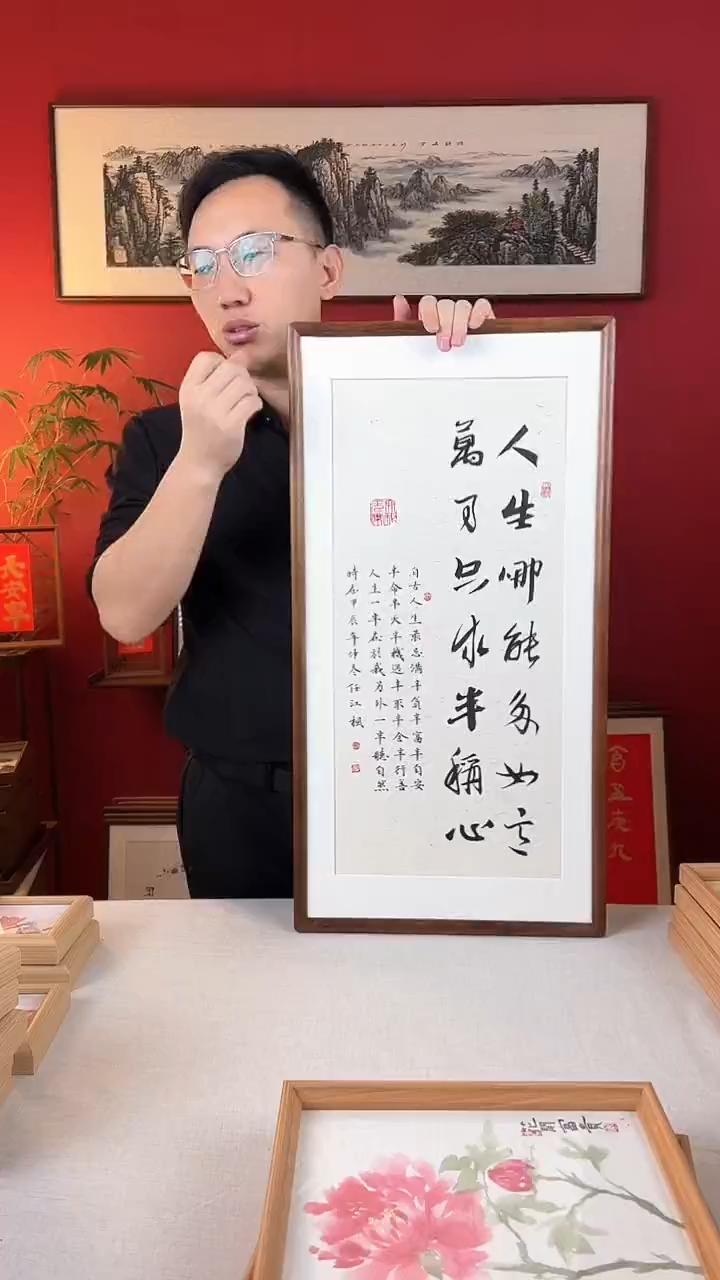 人生哪能多如意
萬事只求半稱心
自古人生最忌滿半貧半富半自安
半命半天半機遇半取半舍半行善
人生一半在於我另外一半聽自然
時在甲辰年仲冬任江
花開富貴